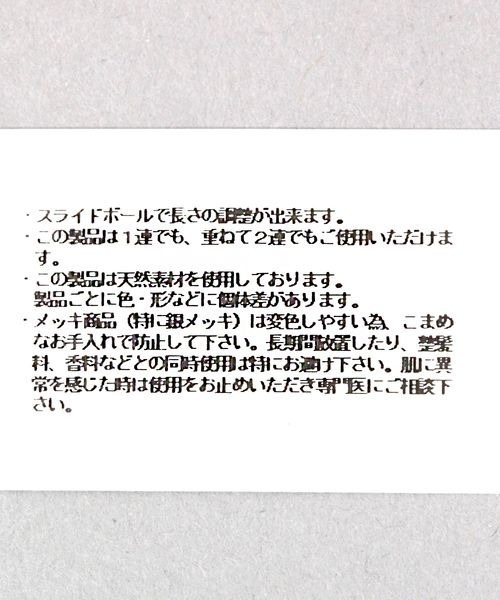 ・スライドボールで長さの調整が出来ます。
・この製品は1連でも、重ねて2連でもご使用いただけま
す。
・この製品は天然素材を使用しております。
製品ごとに色・形などに個体差があります。
・メッキ商品（特に銀メッキ）は変色しやすい為、こまめ
なお手入れで防止して下さい。長期間放置したり、整髪
料、香料などとの同時使用は特にお避け下さい。肌に異
常を感じた時は使用をお止めいただき専門医にご相談下
さい。